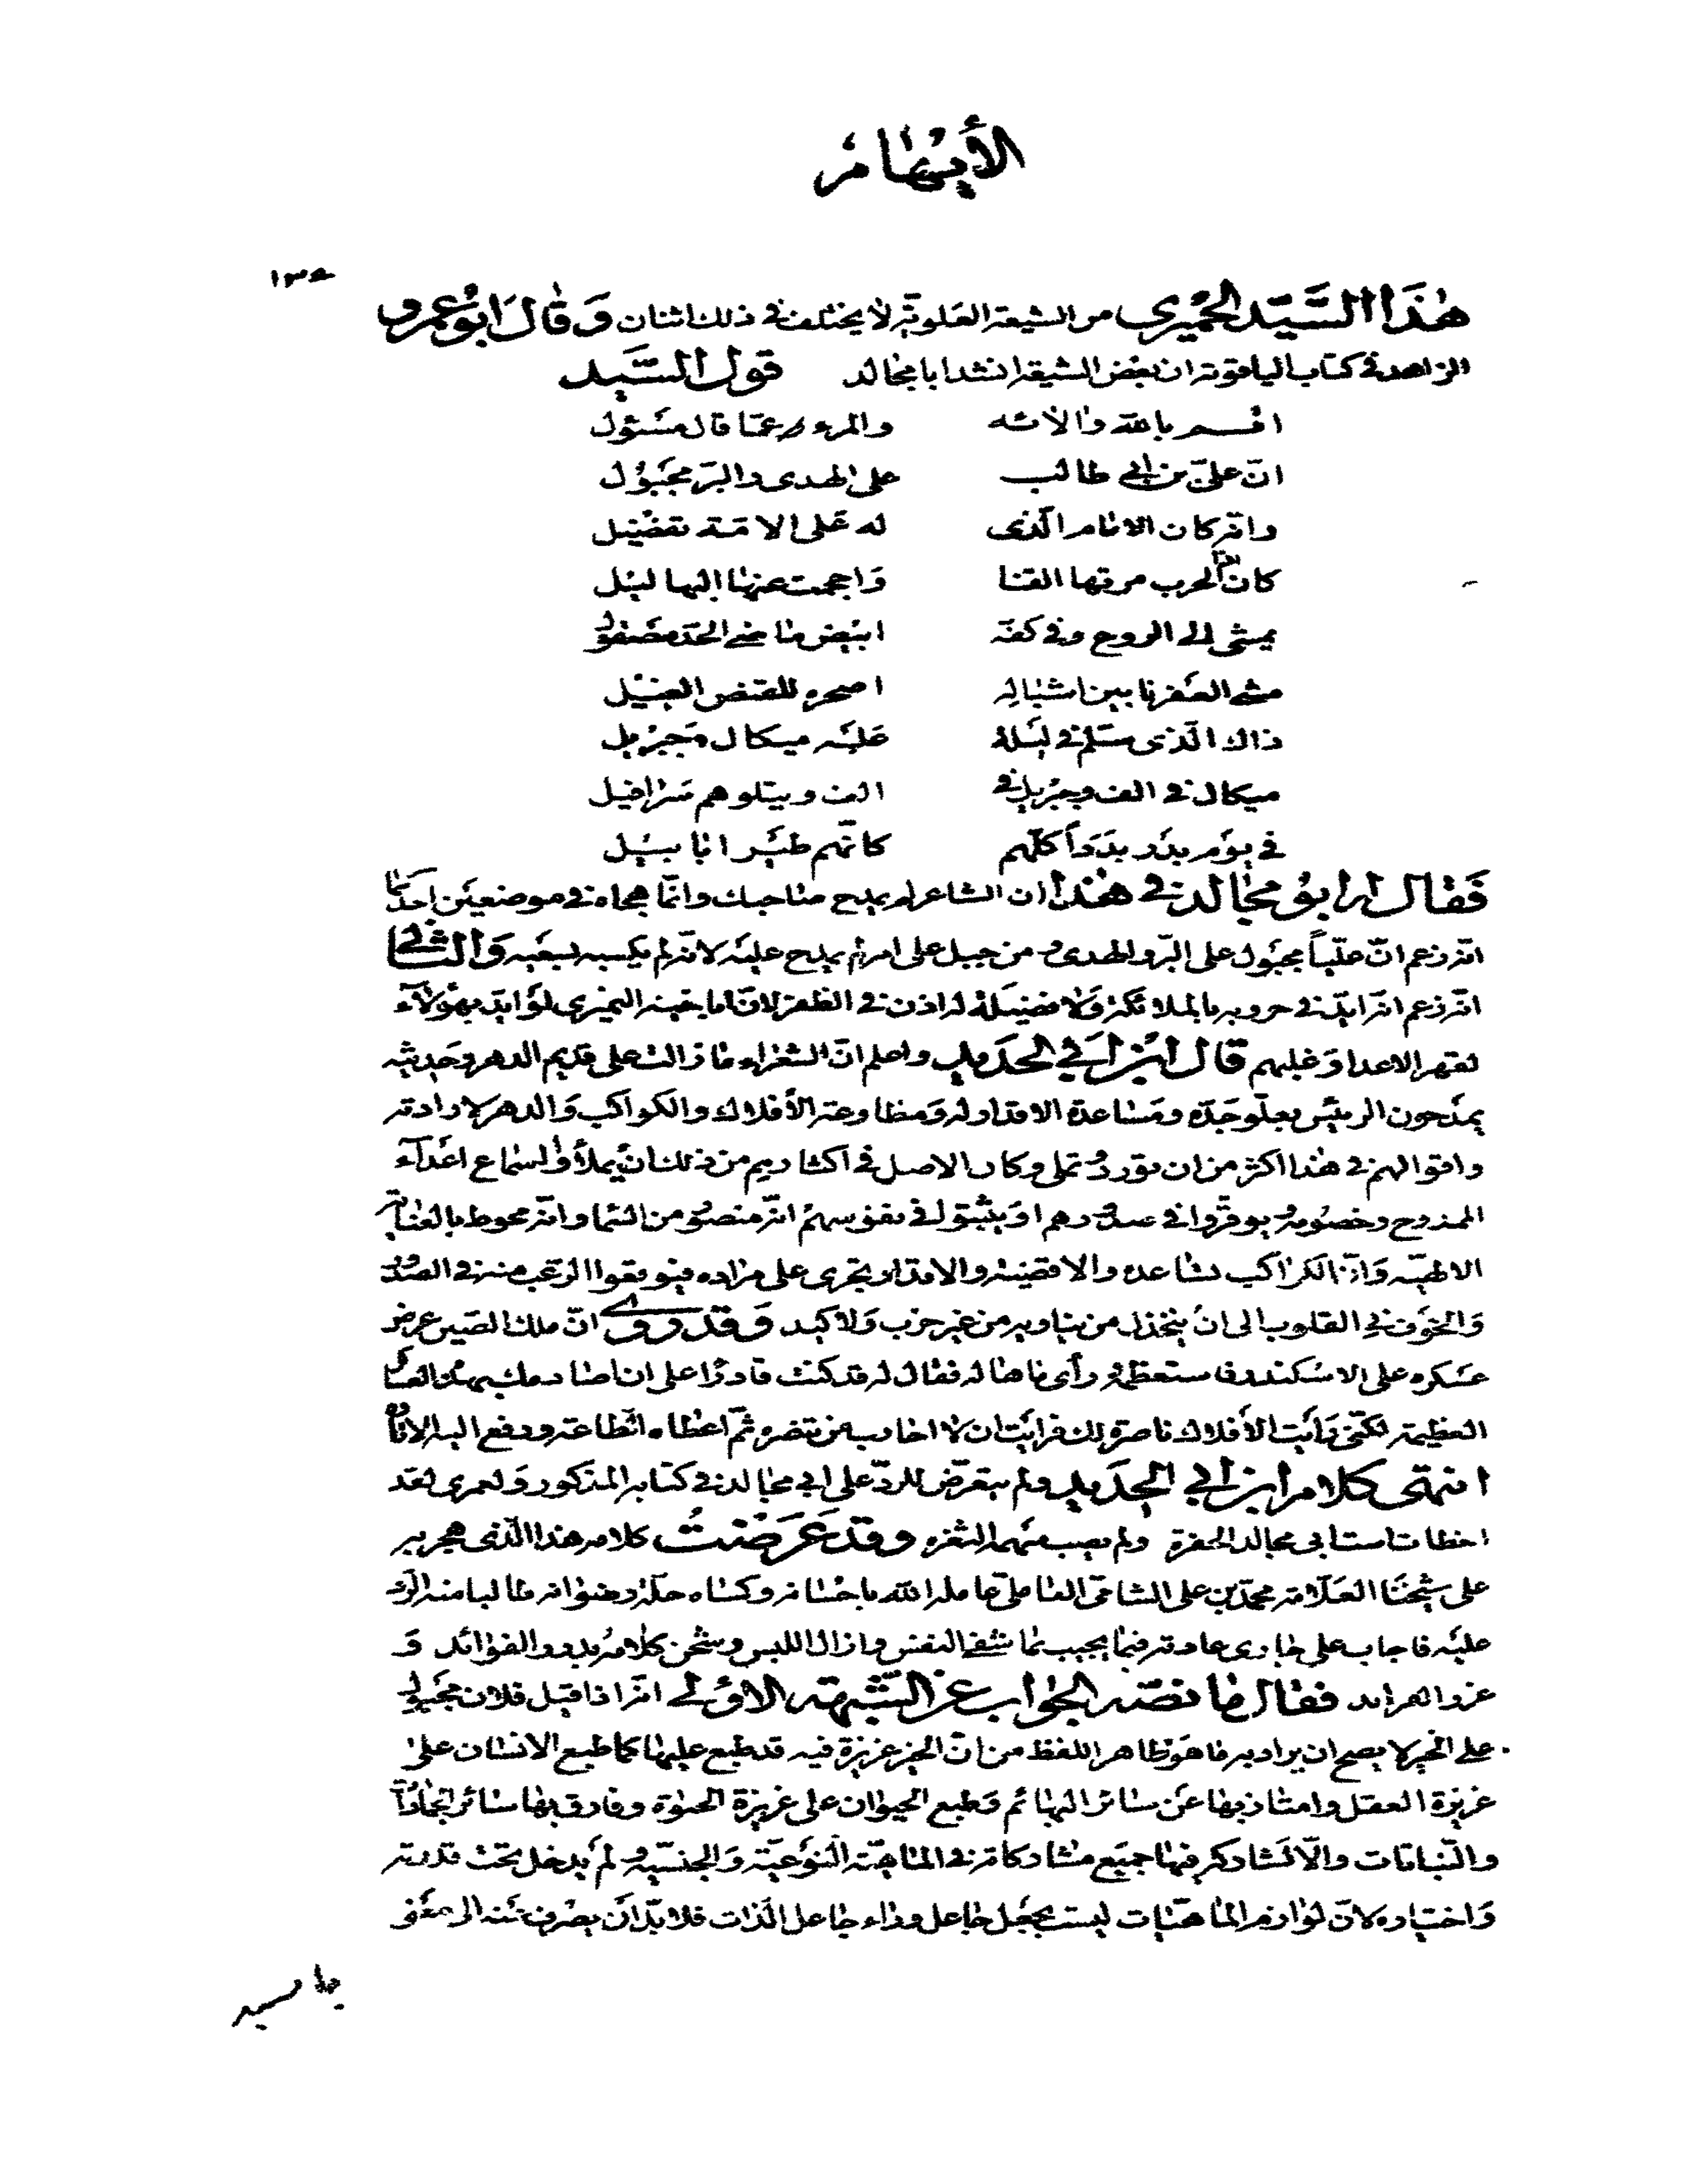 الأبهام
١٣٥
هٰذا السَّيّد الحِمْيري من الشيعة العَلويّة لا يختلف في ذلك اثنان وَقال ابوُ عمرو
الزاهد في كتاب الياقوتة ان بعض الشيعة انشد ابا مجالد قول السَّيد
اقسم بالله والائه والمرء عمّا قال مسْئول
انّ علىّ بن ابي طالب على الهدى والبرّ مجبُول
وانّه كان الامام الّذى له عَلى الامّة تفضْيل
كان اذا الحرب مرتها القنا وَاجحمت عنها البهاليل
يمشى الى الروع وفي كفّه ابيَض ماضي الحدّ مصْقول
مشى العفرنا بين اشبالِه اصحره للقنص الغيْل
ذاك الّذى سَلّم في ليَلة عَليْه ميكال وَجبْريل
ميكال في الف وجبْريل في الف ويتلوهم سَرافيل
في يوَم بدْر بدَداً كلّهم كانّهم طيَر ابابيْل
فَقال ابوُ مجٰالد في هٰذا ان الشاعر لم يمدح صاحبك وانّما هجاه في موضعيَن احدهما
انّه زعم انّ عليّاً مجبُول على البّر والهدى ومن جبل على امر لم يمدح عليْه لانّه لم يكسبه بسعَيه وَالثاني
انّه زعم انّه ايّد في حروبه بالملائكة وَلا فضيلة له اذن في الظفر لانّ ابا حيّة النميرى لوَ ايّد بهؤلآء
لقهر الاعداء وَغلبهم قال ابنْ ابَي الحدَيد واعلم انّ الشعْراء ما زالت على قديم الدهر وحَديثه
يمدَحون الرئيْس بعلّو جَدّه ومسَاعدة الاقدار له وَمطاوعة الأفلاك والكواكب وَالدهر لارادته
واقوالهم في هٰذا اكثر من ان تورد وكان الاصل في اكثارهم من ذلك ان يملأوا اسماع اعدَآء
الممدوح وخصُومه ويوقرّوا في صدُورهم اوَ يثبّتوا في نفوسهمْ انّه منصوُر من السّماء وانّه محوط بالعنايٰة
الالهيّه وَانّ الكواكب تساعده والاقضية والاقدار تجرى على مراده فيوقعوا الرعَب منه في الصدُور
وَالخوَف في القلوب الى انْ ينخذل من يناويه من غير حرَب وَلا كيد وَقد روي انّ ملك الصّين عرض
عسْكره على الاسْكندر فاستعظمه ورأى ما هاله فقال له قد كنت قادرًا على ان اصادمك بهذه العساكر
العظيمة لكنّى رَأيَت الأفلاك ناصرة لك فرايَت ان لا احارب من تنصره ثمّ اعْطاه الطاعة ودفع اليه الاتاوة
انتهى كلامُ ابن ابي الحَديد ولم يتعَرّض للردّ على ابي مجٰالد في كتابه المذكور وَلعمرى لقد
اخطات است ابى مجالد الحفرة ولم يصب سهمه الثغرة وقد عَرَضْتُ كلام هذا الّذى هجر به
على شيْخنَا العلّامة محمّد بن على الشامّى العاملىّ عامله الله باحْسانه وكسَاه حلَل رضْوانه طالبا منه الرّد
عليْه فاجاب على جٰارى عادته فيما يجيب بما شفى النفس وازال اللبس وشحَن كلامُه بدرر الفوٰائد وَ
غرر الفرايد فقال ما نصّه الجوٰاب عن الشّبْهة الاوُلى انّه اذا قيْل فلان مجَبول
على الخير لا يصح ان يراد به ما هوَ ظاهر اللفظ من انّ الخير غريزة فيه قد طبع عليها كما طبع الانسٰان علىٰ
غريزة العقل وامتاز بها عَن سٰائر البهٰائم وَطبع الحيوٰان على غريزة الحيوٰة وفارق بهٰا سٰائر الجمٰادات
والنّباتات والّا لشاركه فيهٰا جميَع مشاركاته في المٰاهيّة النوَعيّة وَالجنسيّه ولم يدخل تحت قدرته
وَاختياره لانّ لوٰازم المٰاهيّات ليست بجعَل جٰاعل ورٰاء جٰاعل الّذات فلا بدّ اَن يصْرف عَنه الى معَنى